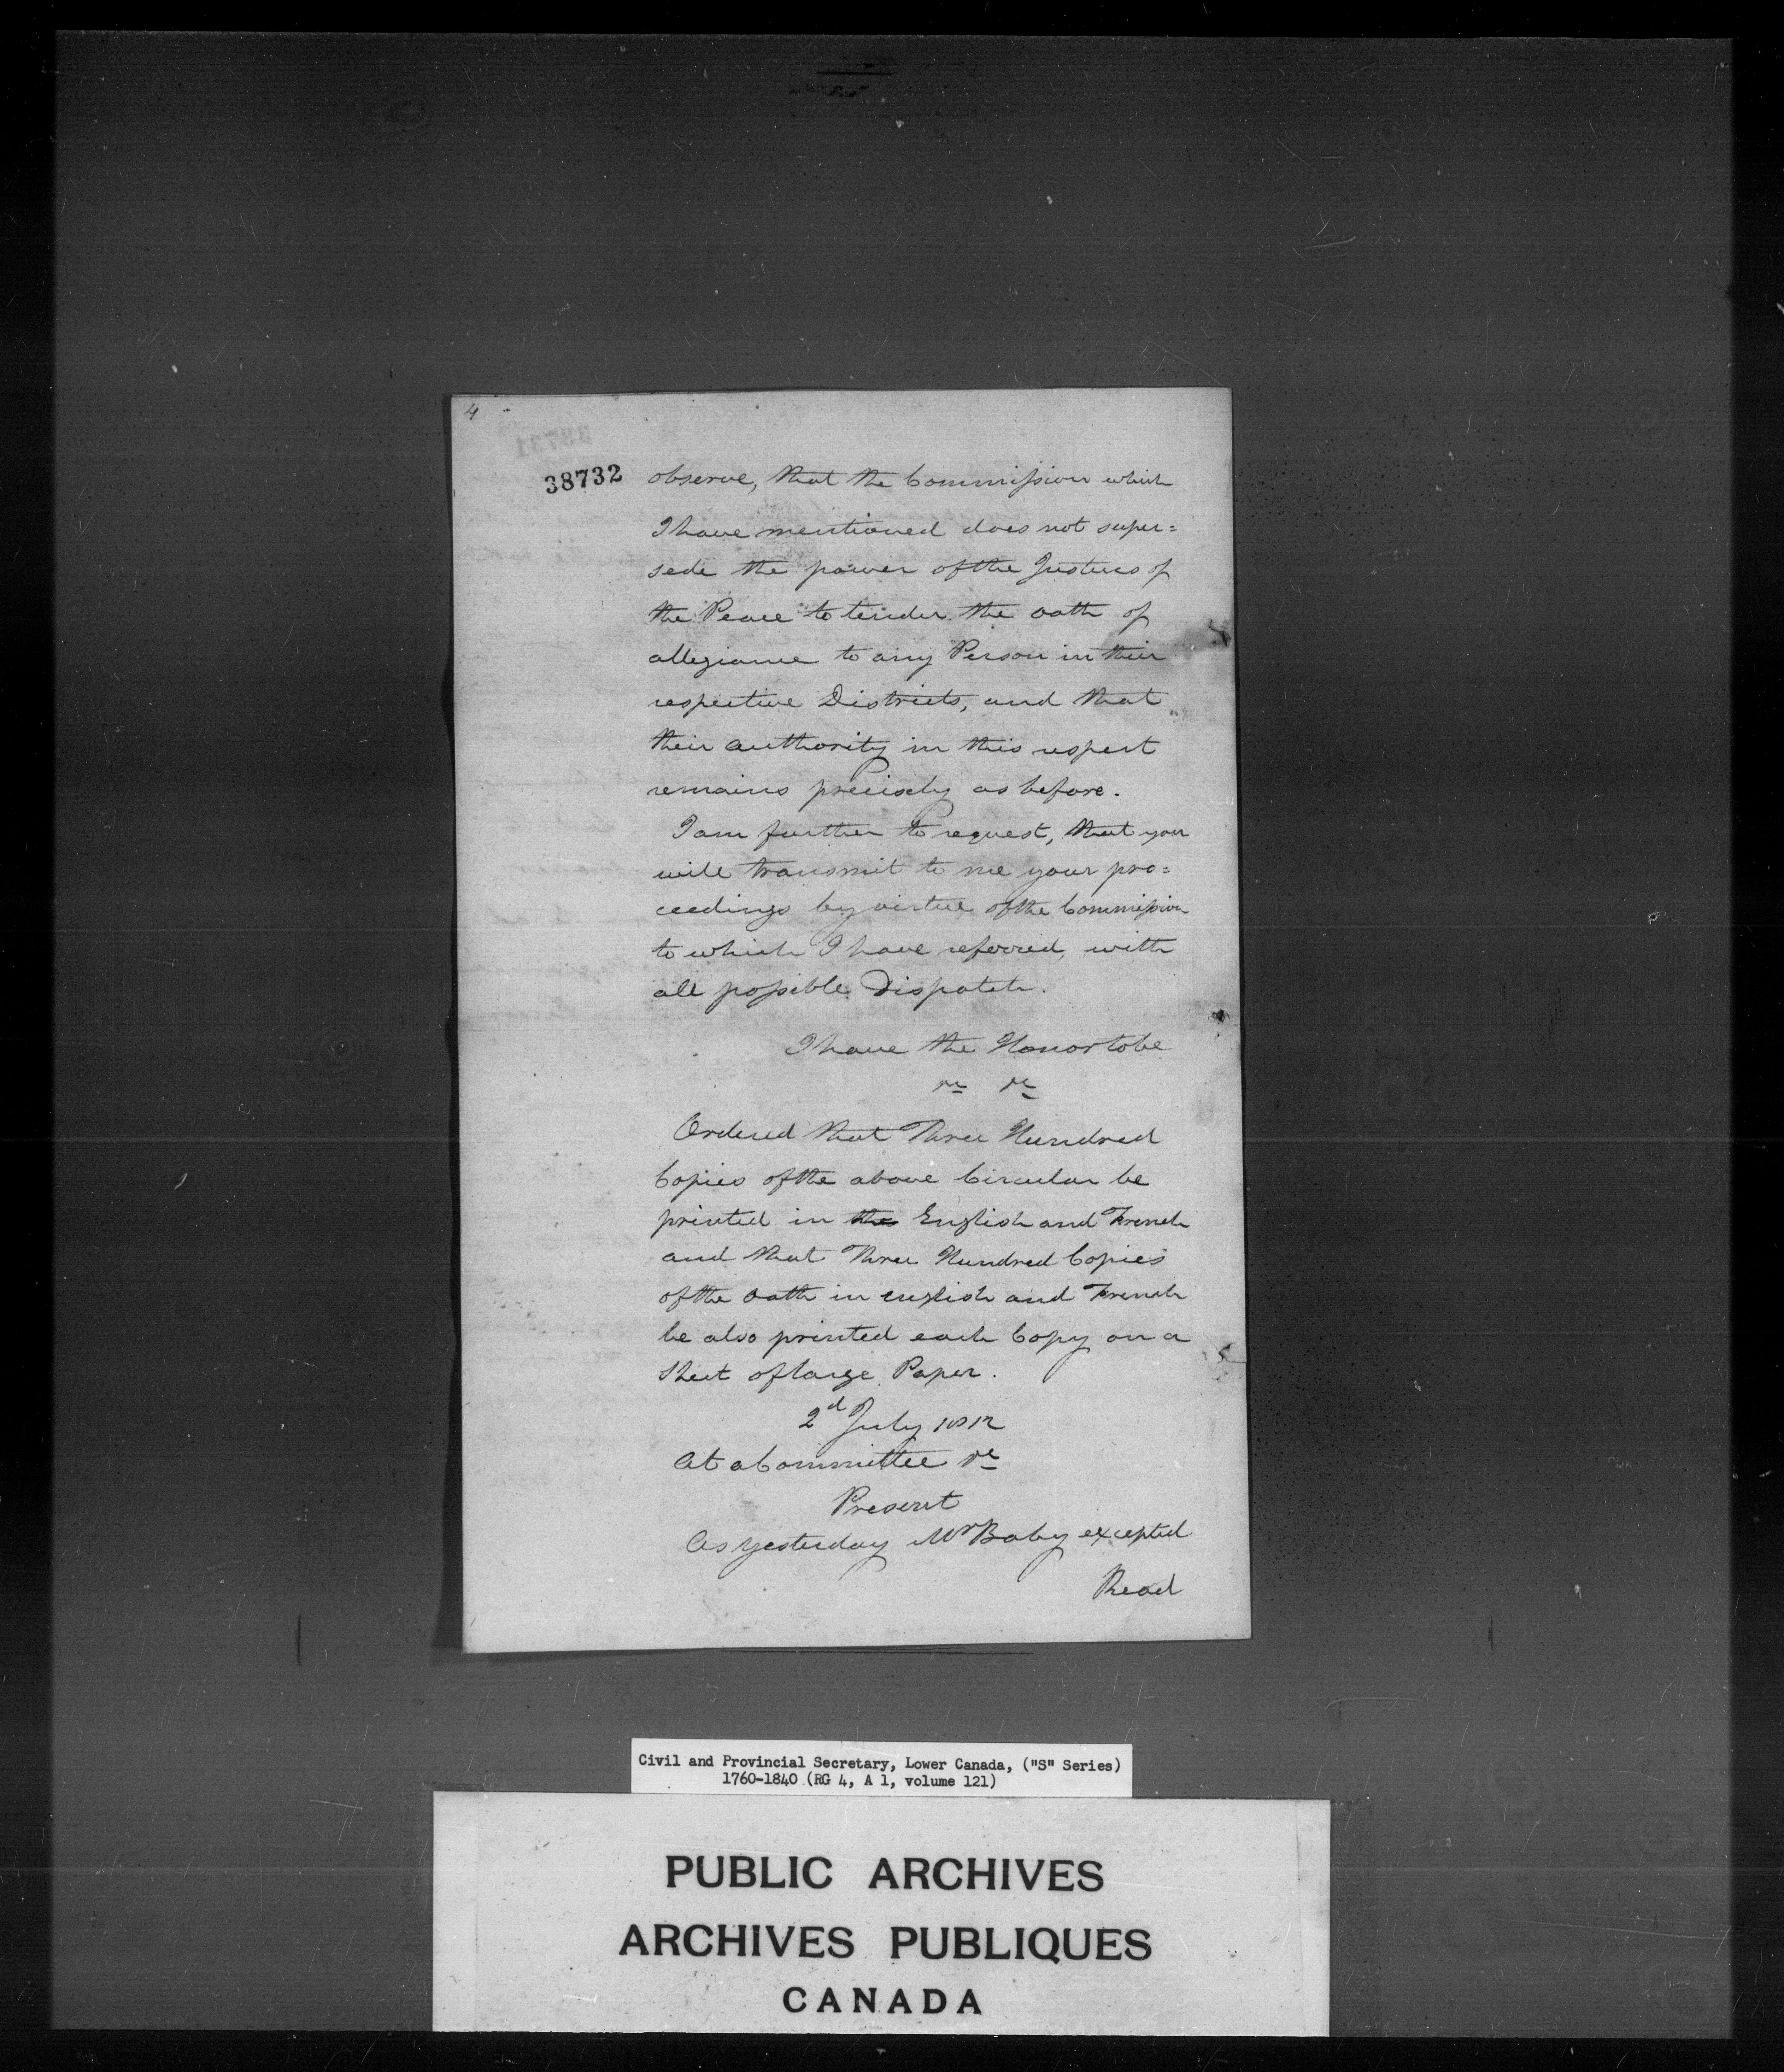 4
38732
observe, that the Commission which
I have mentioned does not super=
sede the power of the Justices of
the Peace to tender the oath of
allegiance to any Person in their
respective Districts, and that
their authority in this respect
remains precisely as before.
I am further to request, that you
will transmit to me your pro=
ceedings by virtue of the Commission
to which I have referred, with
all possible Dispatch.
I have the Honor to be
&c &c
Ordered that Three Hundred
Copies of the above Circular be
printed in the English and French
and that Three Hundred Copies
of the Oath in English and French
be also printed each Copy on a
Sheet of large Paper.
2d July 1812
At a Committee &c
Present
As yesterday Mr Baby excepted
Read
Civil and Provincial Secretary, Lower Canada, ("S" Series)
1760-1840 (RG 4, A 1, volume 121)
PUBLIC ARCHIVES
ARCHIVES PUBLIQUES
CANADA